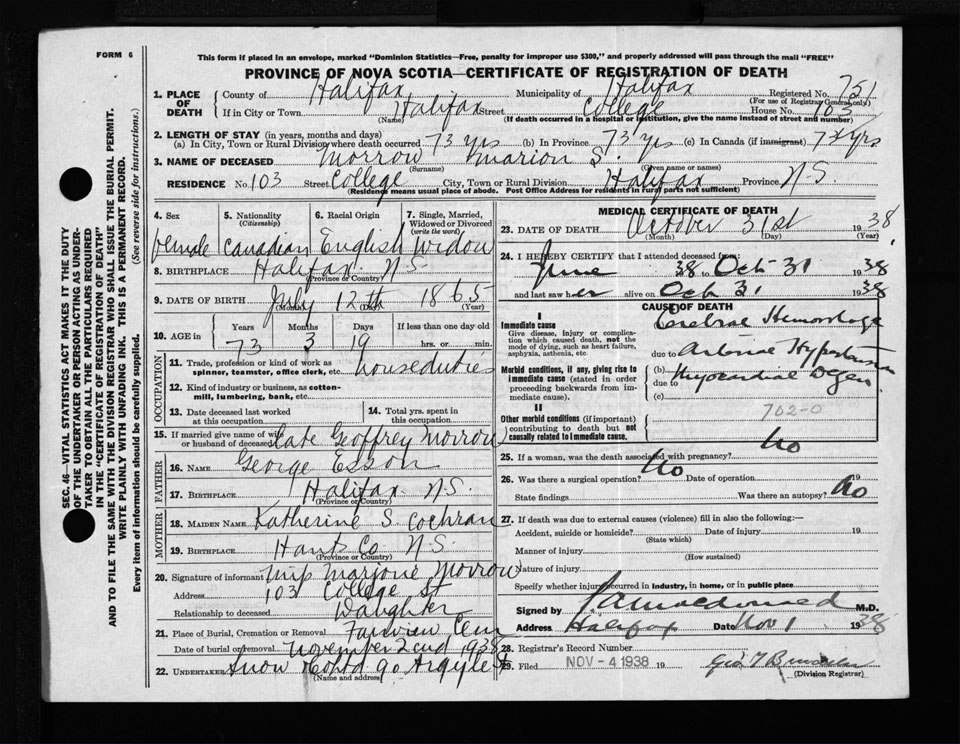 FORM 6
This form if placed in an envelope, marked "Dominion Statistics—Free, penalty for improper use $300," and properly addressed will pass through the mail "FREE"
PROVINCE OF NOVA SCOTIA—CERTIFICATE OF REGISTRATION OF DEATH
1. PLACE OF DEATH County of Halifax Municipality of Halifax Registered No. 751
(For use of Registrar General only)
If in City or Town Halifax Street College House No. 103
(Name) (If death occurred in a hospital or institution, give the name instead of street and number)
2. LENGTH OF STAY (in years, months and days)
(a) In City, Town or Rural Division where death occurred 73 yrs (b) In Province 73 yrs (c) In Canada (if immigrant) 73 yrs
3. NAME OF DECEASED Morrow Marion S.
(Surname) (Given name or names)
RESIDENCE No. 103 Street College City, Town or Rural Division Halifax Province N.S.
(Residence means usual place of abode. Post Office Address for residents in rural parts not sufficient)
4. Sex 5. Nationality (Citizenship) 6. Racial Origin 7. Single, Married, Widowed or Divorced (write the word)
female Canadian English widow
8. BIRTHPLACE Halifax N.S.
(Province or Country)
9. DATE OF BIRTH July 12th 1865
(Month) (Day) (Year)
10. AGE in Years Months Days If less than one day old
73 3 19 hrs. or min.
OCCUPATION
11. Trade, profession or kind of work as spinner, teamster, office clerk, etc. house duties
12. Kind of industry or business, as cotton-mill, lumbering, bank, etc.
13. Date deceased last worked at this occupation 14. Total yrs. spent in this occupation
15. If married give name of wife or husband of deceased Late Geoffrey Morrow
FATHER
16. NAME George Esson
17. BIRTHPLACE Halifax N.S.
(Province or Country)
MOTHER
18. MAIDEN NAME Katherine S. Cochran
19. BIRTHPLACE Hants Co N.S.
(Province or Country)
20. Signature of informant Miss Marjorie Morrow
Address 103 College St
Relationship to deceased Daughter
21. Place of Burial, Cremation or Removal Fairview Cem
Date of burial or removal November 2nd 1938
22. UNDERTAKER Snow & Co Ltd 90 Argyle St
(Name and address)
MEDICAL CERTIFICATE OF DEATH
23. DATE OF DEATH October 31st 1938
(Month) (Day) (Year)
24. I HEREBY CERTIFY that I attended deceased from:
June 38 to Oct 31 1938
and last saw her alive on Oct 31 1938
CAUSE OF DEATH
I
Immediate cause Cerebral Hemorrhage
Give disease, injury or complication which caused death, not the mode of dying, such as heart failure, asphyxia, asthenia, etc.
due to Arterial Hypertension
Morbid conditions, if any, giving rise to immediate cause (stated in order proceeding backwards from immediate cause).
(b) Myocardial Degen
due to
(c)
702-0
II
Other morbid conditions (if important) contributing to death but not causally related to immediate cause.
25. If a woman, was the death associated with pregnancy? No
26. Was there a surgical operation? No Date of operation 19
State findings Was there an autopsy? No
27. If death was due to external causes (violence) fill in also the following:—
Accident, suicide or homicide? Date of injury 19
(State which)
Manner of injury
(How sustained)
Nature of injury
Specify whether injury occurred in industry, in home, or in public place
Signed by J. A. Macdonald M.D.
Address Halifax Date Nov 1 1938
28. Registrar's Record Number
29. Filed NOV - 4 1938 19
(Division Registrar)
SEC. 46—VITAL STATISTICS ACT MAKES IT THE DUTY
OF THE UNDERTAKER OR PERSON ACTING AS UNDER-
TAKER TO OBTAIN ALL THE PARTICULARS REQUIRED
IN THE "CERTIFICATE OF REGISTRATION OF DEATH"
AND TO FILE THE SAME WITH THE DIVISION REGISTRAR WHO SHALL ISSUE THE BURIAL PERMIT.
WRITE PLAINLY WITH UNFADING INK. THIS IS A PERMANENT RECORD.
Every item of information should be carefully supplied. (See reverse side for instructions.)